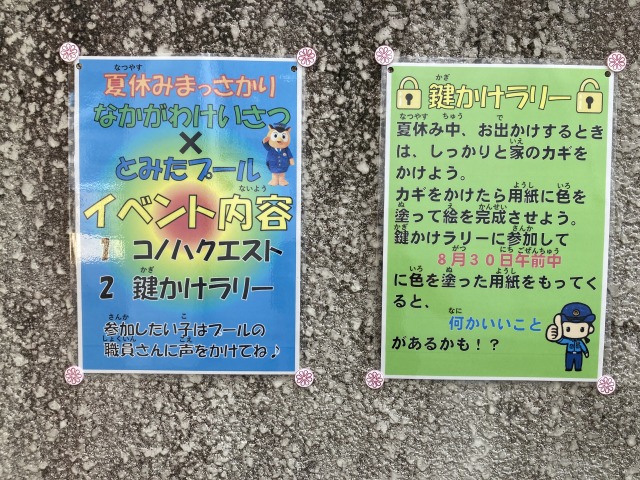 夏休みまっさかり
なかがわけいさつ
×
とみたプール
イベント内容
1 コノハクエスト
2 鍵かけラリー
参加したい子はプールの
職員さんに声をかけてね♪
鍵かけラリー
夏休み中、お出かけするとき
は、しっかりと家のカギを
かけよう。
カギをかけたら用紙に色を
塗って絵を完成させよう。
鍵かけラリーに参加して
8月30日午前中
に色を塗った用紙をもってく
ると、
何かいいこと
があるかも!?